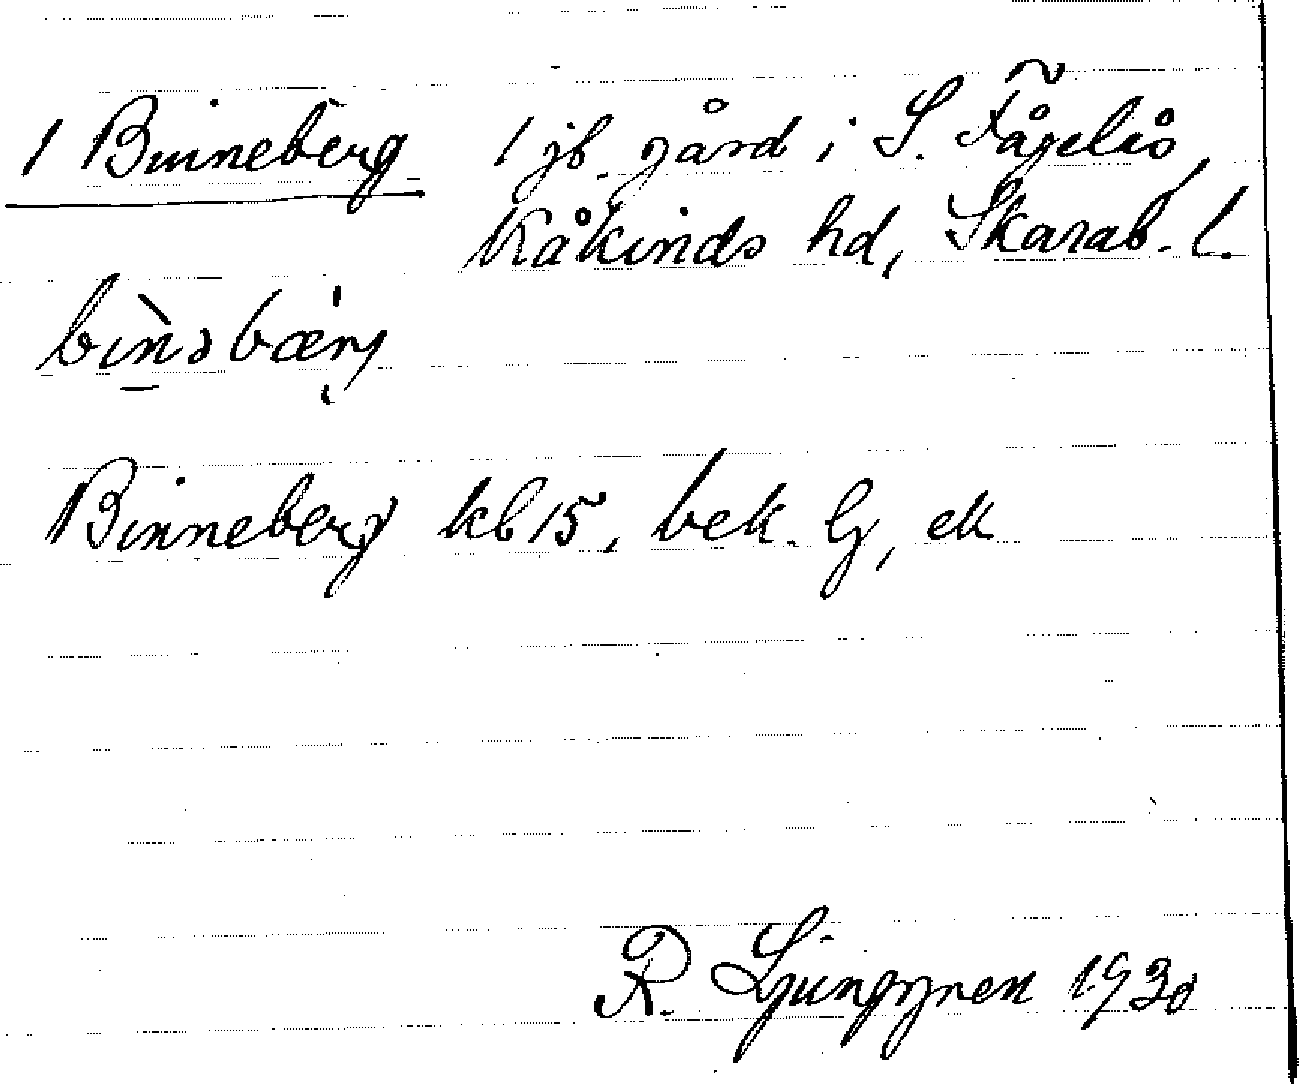 1 Binneberg 1 jb. gård i S. Fågelås
Kåkinds hd, Skarab. l.
Binneberg kb 15, bek. Lj, ek
R. Ljunggren 1930